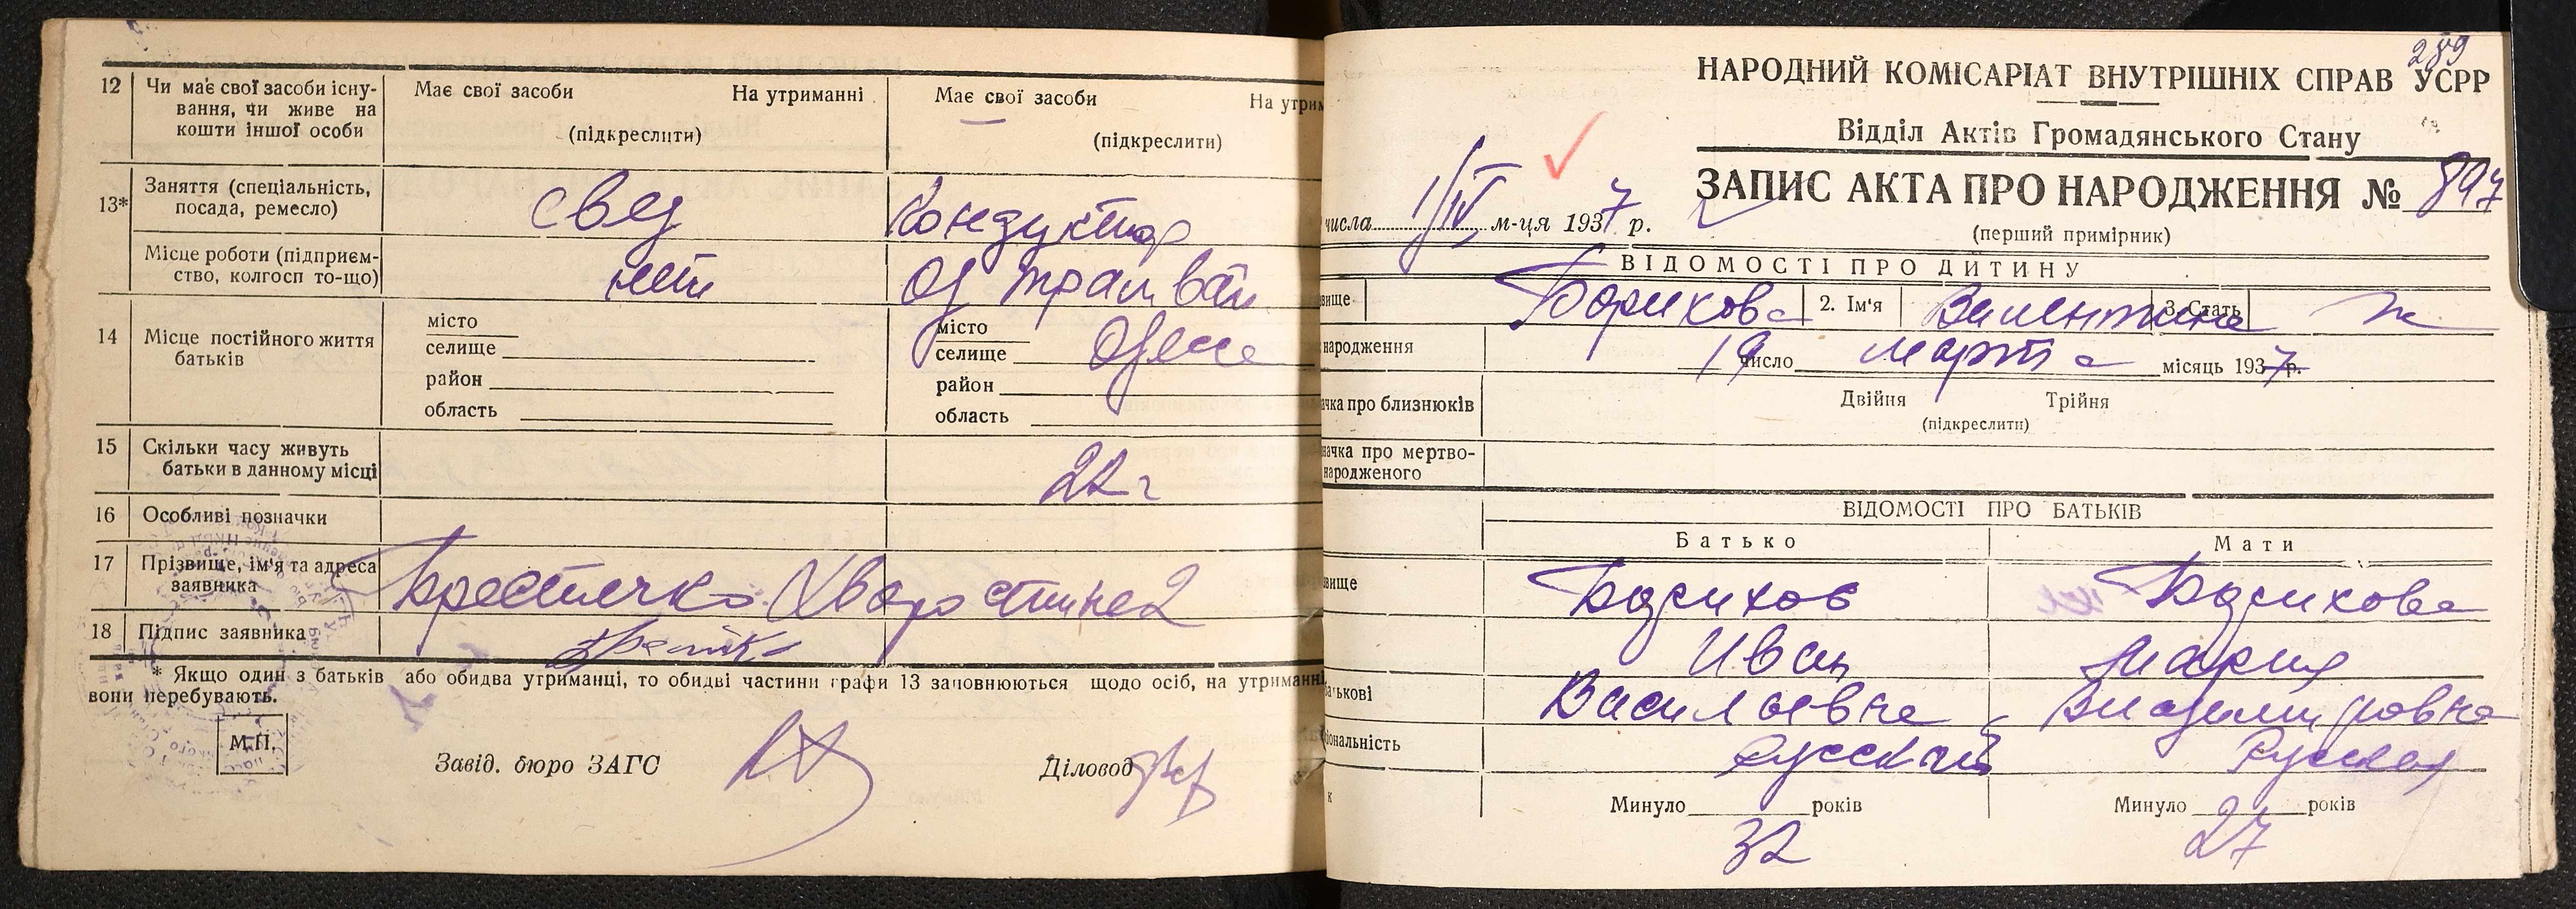 12 Чи має свої засоби існу-
вання, чи живе на
кошти іншої особи
Має свої засоби На утриманні
(підкреслити)
Має свої засоби На утрим
(підкреслити)
13* Заняття (спеціальність,
посада, ремесло)
свед
Кондуктор
Місце роботи (підприєм-
ство, колгосп то-що)
нет
Од трамвай
14 Місце постійного життя
батьків
місто
селище
район
область
місто
селище Одесса
район
область
15 Скільки часу живуть
батьки в данному місці
22 г
16 Особливі позначки
17 Прізвище, ім'я та адреса
заявника
18 Підпис заявника
* Якщо один з батьків або обидва утриманці, то обидві частини графи 13 заповнюються щодо осіб, на утриманні
вони перебувають.
М.П.
Завід. бюро ЗАГС
Діловод
289
НАРОДНИЙ КОМІСАРІАТ ВНУТРІШНІХ СПРАВ УСРР
Відділ Актів Громадянського Стану
ЗАПИС АКТА ПРО НАРОДЖЕННЯ № 897
числа 1/IV м-ця 1937 р.
(перший примірник)
ВІДОМОСТІ ПРО ДИТИНУ
вище Борихова 2. Ім'я Валентина 3. Стать ж
народження 19 число марта місяць 1937 р.
ачка про близнюків
Двійня Трійня
(підкреслити)
начка про мертво-
народженого
ВІДОМОСТІ ПРО БАТЬКІВ
Батько Мати
вище Борихов Борихова
Иван Мария
батькові Васильевич Владимировна
ціональність Русский Русская
к Минуло 32 років Минуло 27 років